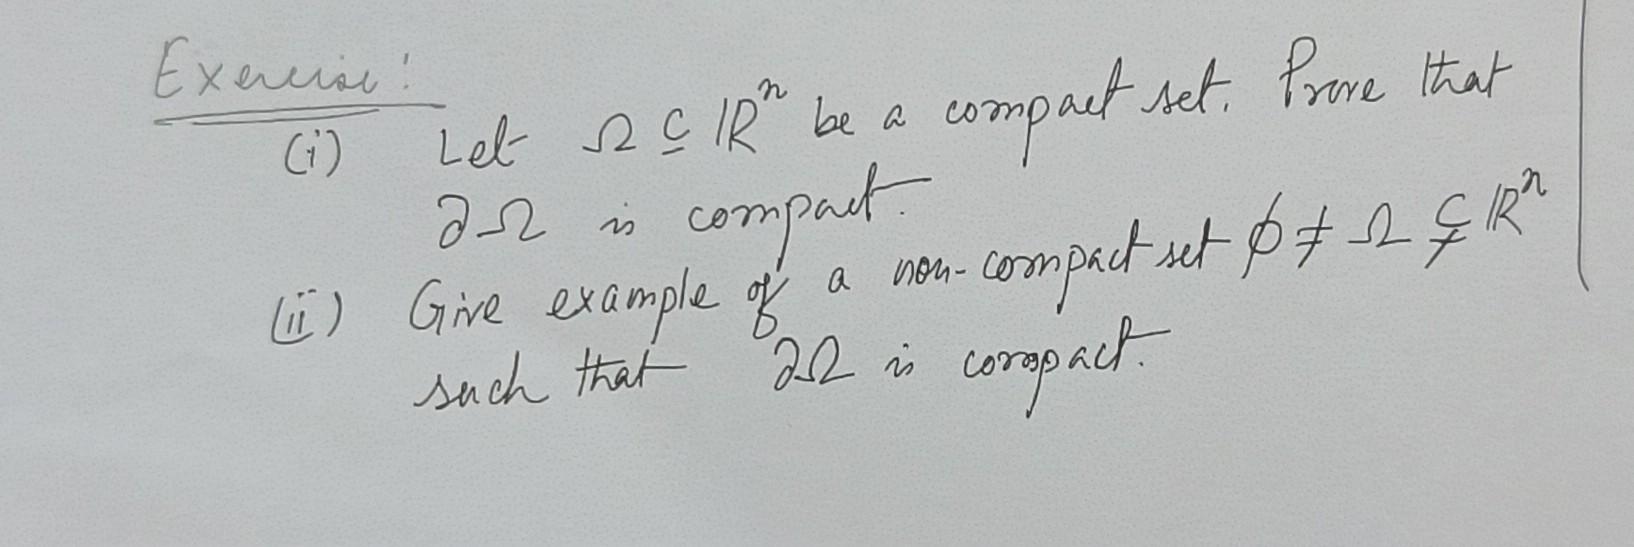 Exercise:
(i) Let Ω ⊆ ℝⁿ be a compact set. Prove that
∂Ω is compact.
(ii) Give example of a non-compact set ϕ ≠ Ω ⊊ ℝⁿ
such that ∂Ω is compact.